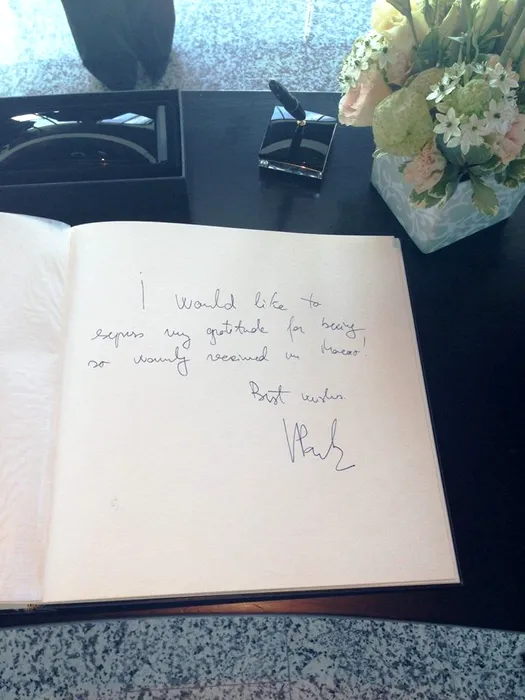 I would like to
express my gratitude for being
so warmly received in Macao!
Best wishes.